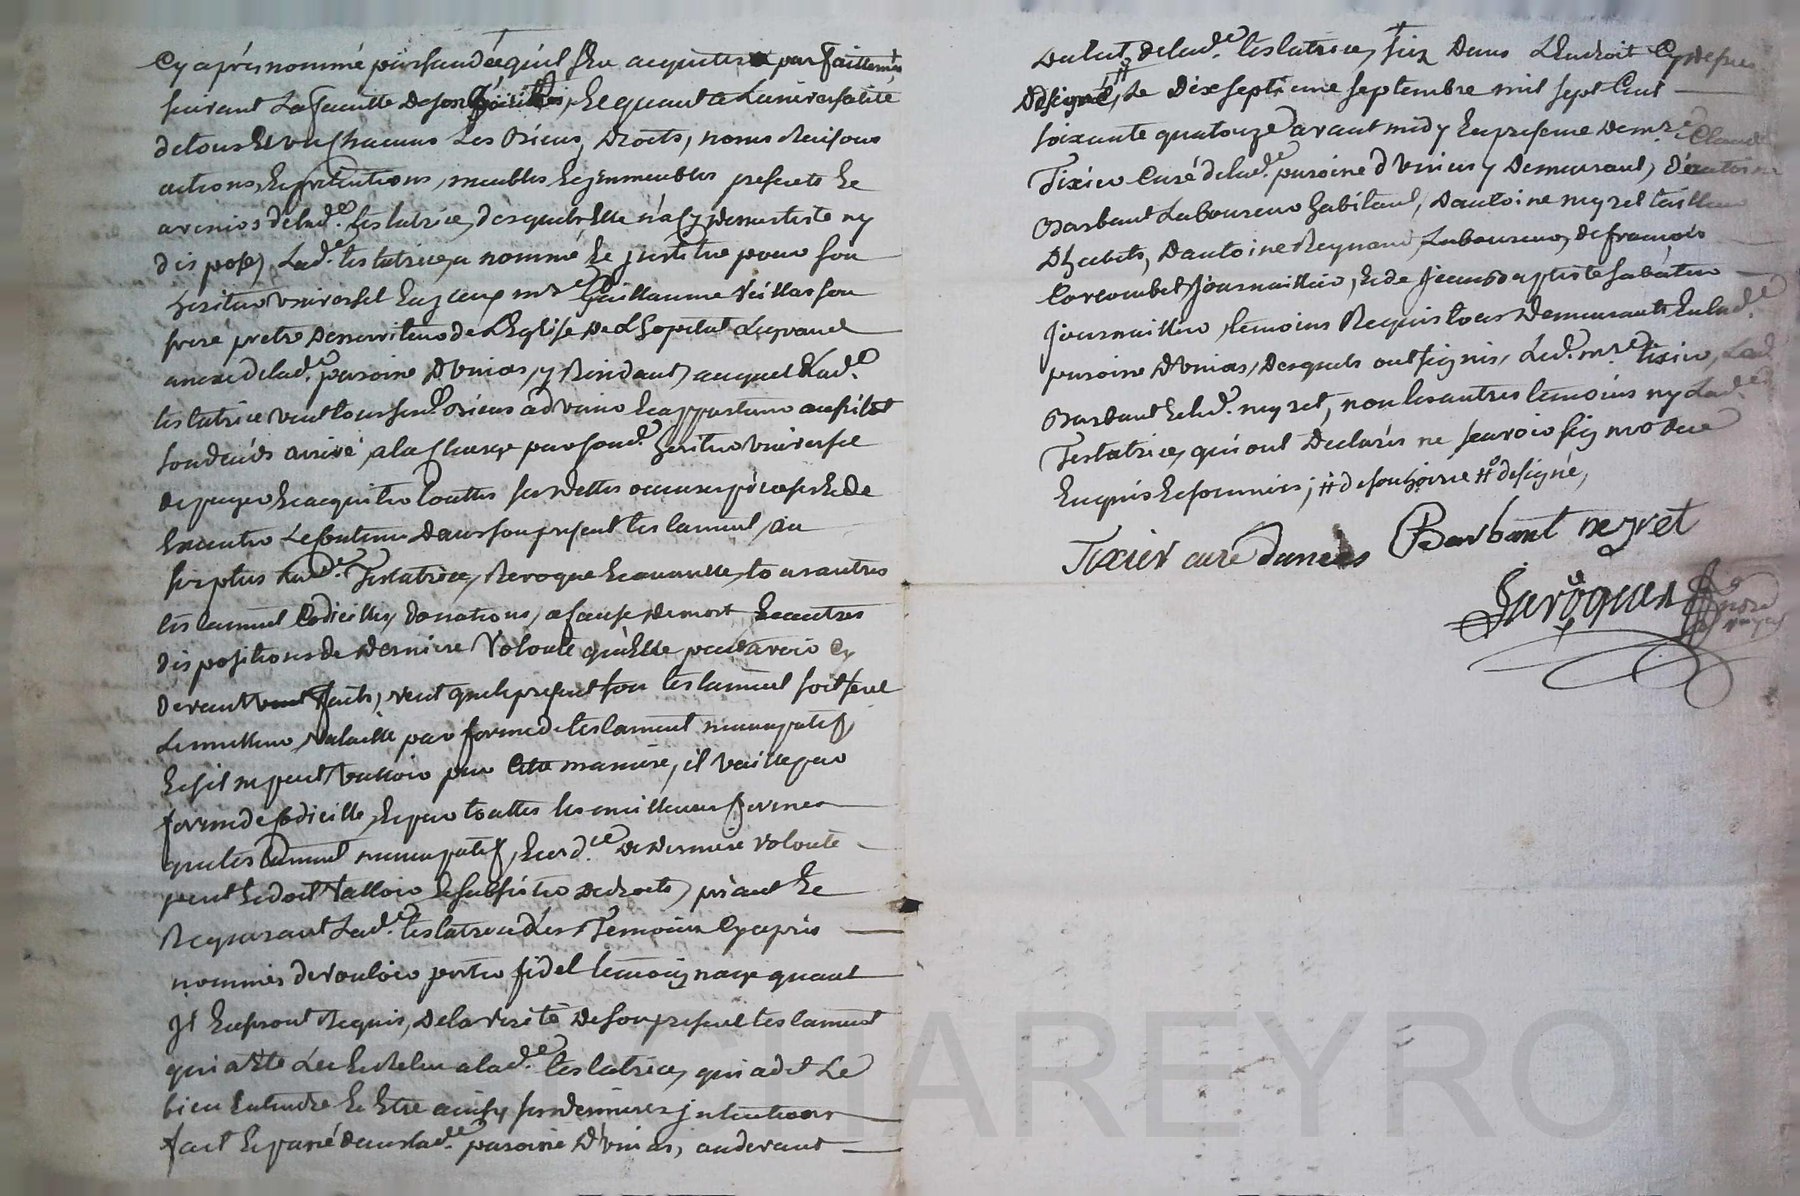 Cy après nommé persuadée qu'il sera acquitter parfaittemt
suivant La faculté de son heritier, Et quant a L'universalité
de tous Et un chacuns Les Biens, Droits, noms Raisons
actions, Et prétentions, meubles Et jmmeubles presents Et
avenirs de lad.e testatrice, desquels Elle n'a cy devant testé ny
disposé, Lad.e testatrice, a nommé Et jnstitué pour son
heritier universel Led. sieur m.re Guillaume Veillas son
frere pretre Desserviteur de L'Eglise De L'hopital Legrand
anexe de lad.e paroisse D'Unias, y Residant, auquel Lad.e
testatrice veut tous sesd. Biens advenir Et appartenir aussitot
son deceds arrivé, a la charge par sond. heritier universel
De payer Et acquitter touttes ses dettes œuvres pieuses Et de
Executer Le contenu Dans son present testament, au
surplus Lad.e Testatrice, Revoque Et annulle, tous autres
testament Codicilles, Donations, a cause de mort Et autres
dispositions de Derniere Volonté qu'Elle peut avoir Cy
devant faits, veut que le present son testament soit seul
Le meilleur, valable par forme de testament nuncupatif,
Et s'il ne peut Valloir par Cette maniere, il vaille par
forme de Codicille, Et par touttes les meilleures formes
que testament nuncupatif, Et ord.ce de derniere volonté
peut Et doit Valloir Et subsister de droits, priant Et
Requerant Lad.e testatrice Les Temoins Cy après
nommés de vouloir porter fidel temoignage quant
Jls En seront Requis, De la verité De son present testament
qui a Eté Leu Et Releu a lad.e testatrice, qui a dit Le
bien Entendre Et Etre ainsy ses dernieres jntentions
fait Et passé dans lad.e paroisse D'Unias, au devant
de lad.e testatrice, sis Dans L'Endroit Cy dessus
Designé, Le Dix septieme septembre mil sept Cent
soixante quatorze avant midy En presence De m.re Claude
Tixier Curé de lad.e paroisse d'Unias y Demeurant, D'antoine
Barbant Laboureur habitant, D'antoine neyret tailleur
D'habits, D'antoine Reynaud, Laboureur, de françois
Corcombet Journaillier, Et de Jean Baptiste Sabatier
journaillier, temoins Requis tous Demeurants En lad.e
paroisse D'Unias, Desquels ont signés, Led. m.re Tixier, Led.
Barbant Et led. neyret, non les autres temoins ny Lad.e
Testatrice, qui ont Declarés ne scavoir signer de ce
Enquis Et sommés; # designé,
Tixier curé dunias Barbant neyret